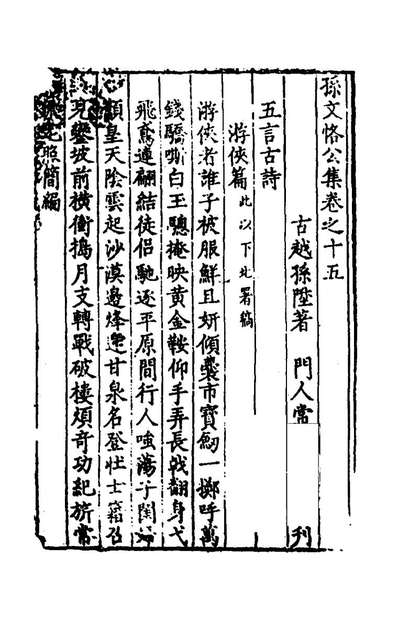 孫文恪公集卷之十五
古越孫陞著 門人常 刊
五言古詩
游俠篇此以下北署稿
游俠者誰子被服鮮且妍傾囊市寶劒一擲呼萬
錢驕嘶白玉驄掩映黃金鞍仰手弄長戟翻身弋
飛鳶連翩結徒侶馳逐平原間行人嗤蕩子閨
顏皇天陰雲起沙漠邊烽達甘泉名登壯士籍召
見鑾坡前橫衝搗月支轉戰破樓煩奇功紀旂常
照簡編